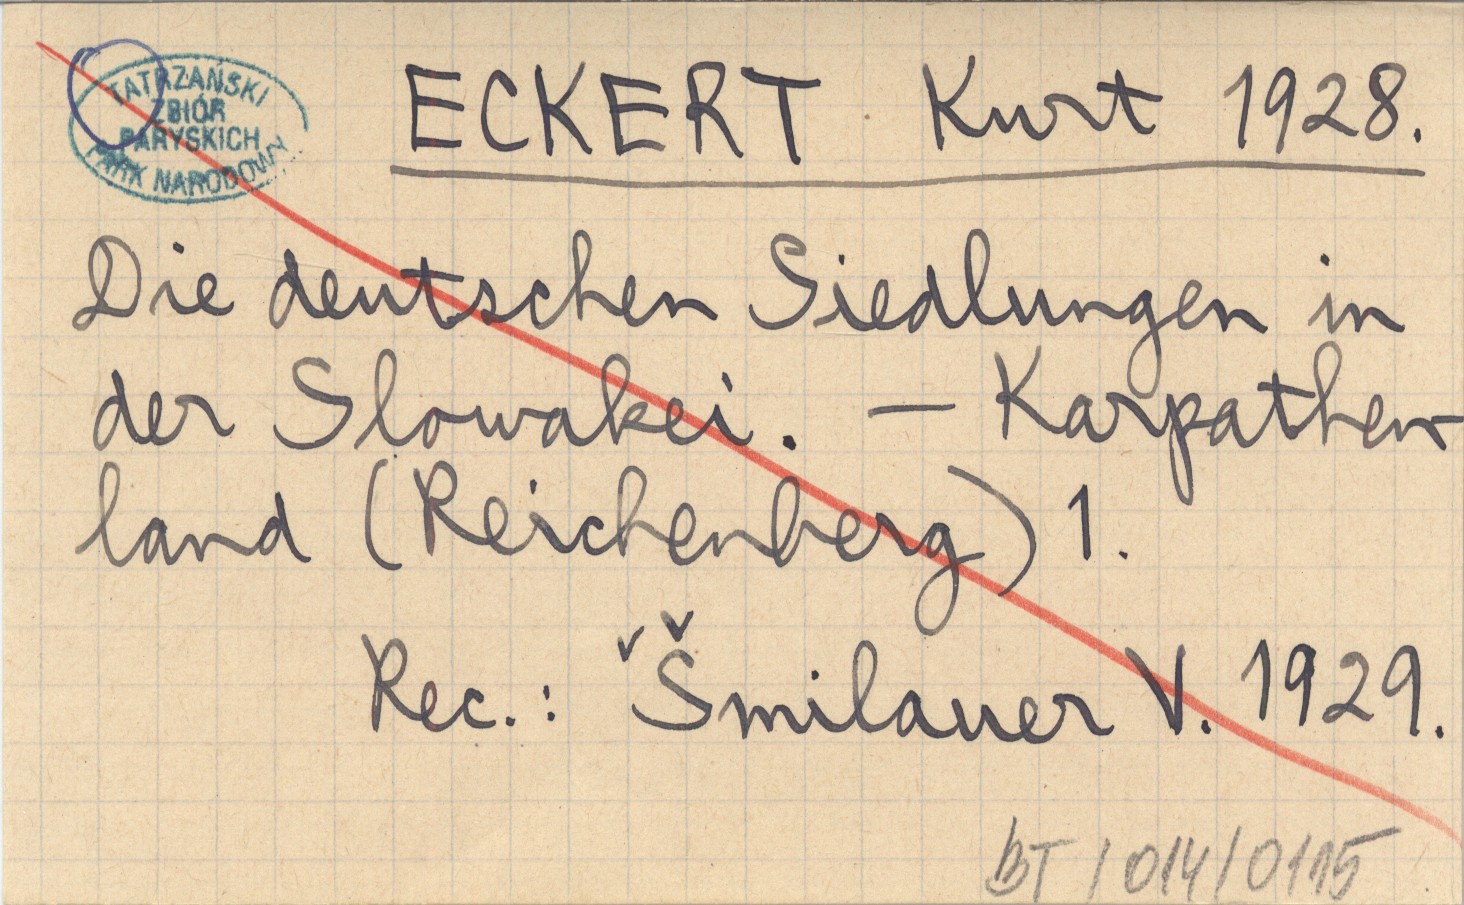 TATRZAŃSKI
ZBIÓR
PARYSKICH
PARK NARODOWY
ECKERT Kurt 1928.
Die deutschen Siedlungen in
der Slowakei. — Karpathen-
land (Reichenberg) 1.
Rec.: Šmilauer V. 1929.
BT/014/0115